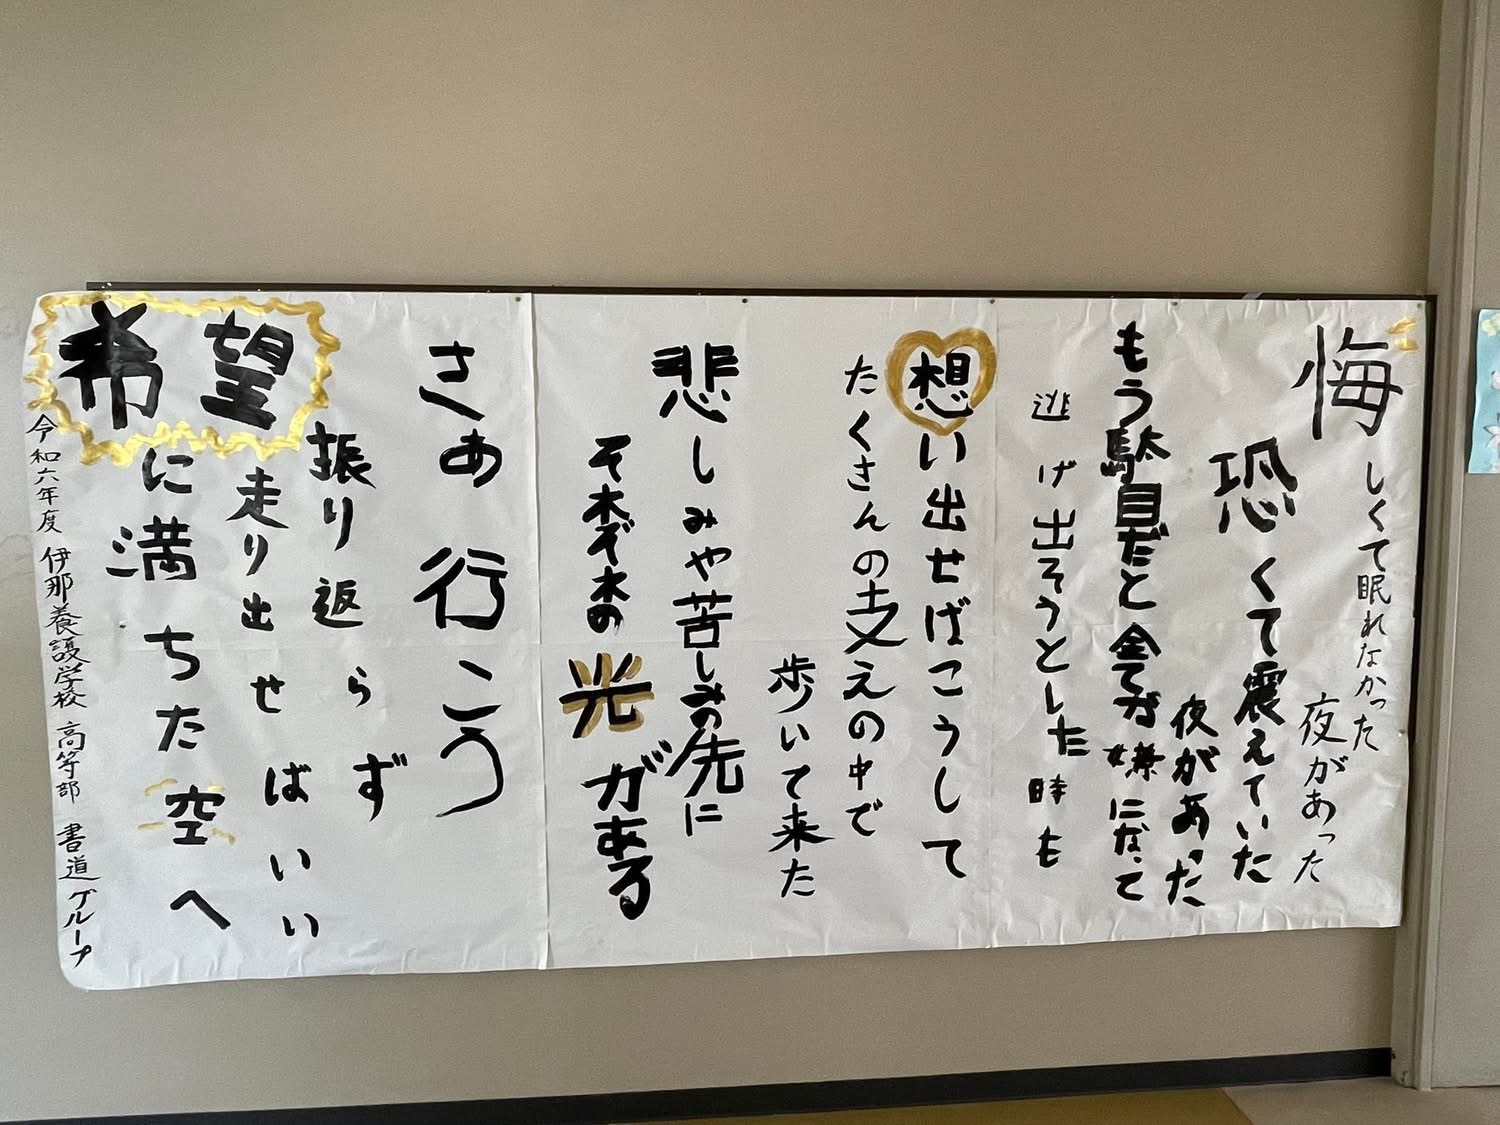 悔しくて眠れなかった
夜があった
恐くて震えていた
夜があった
もう駄目だと全てが嫌になって
逃げ出そうとした時も
想い出せばこうして
たくさんの支えの中で
歩いて来た
悲しみや苦しみの先に
それぞれの光がある
さあ行こう
振り返らず
走り出せばいい
希望に満ちた空へ
令和六年度 伊那養護学校 高等部 書道グループ